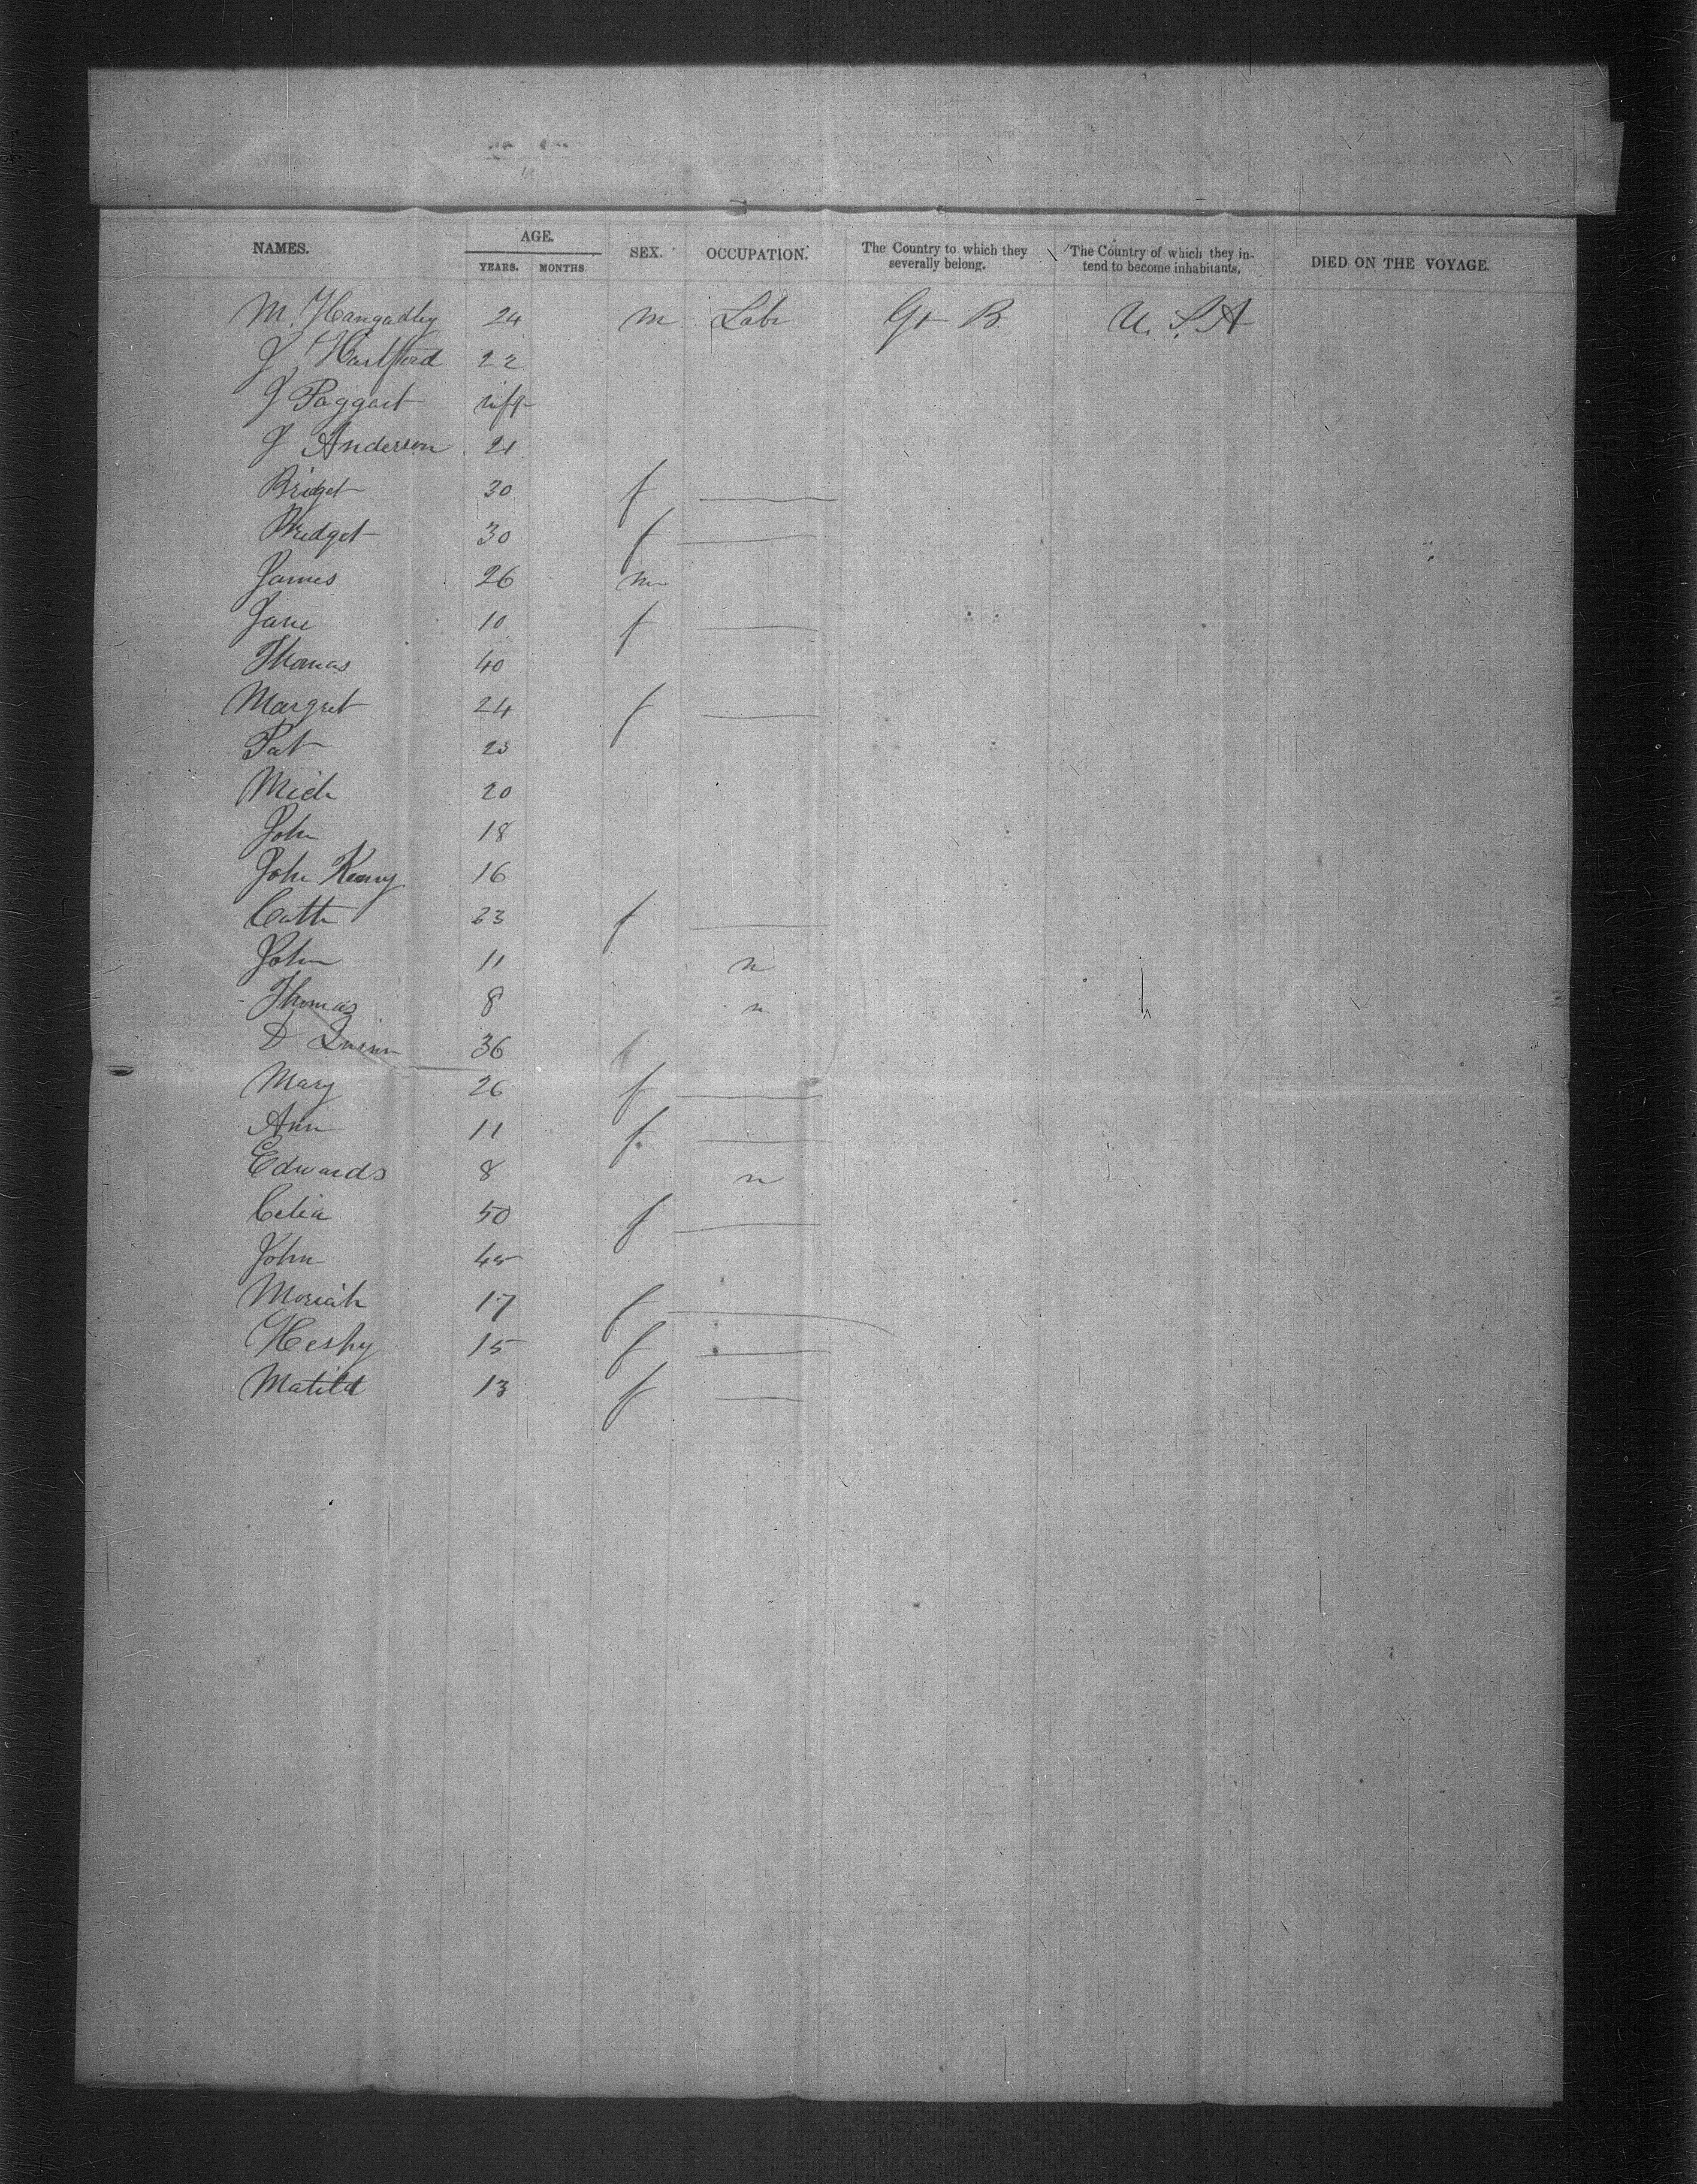 NAMES. AGE. SEX. OCCUPATION. The Country to which they severally belong. The Country of which they intend to become inhabitants. DIED ON THE VOYAGE.
YEARS. MONTHS.
M. 24 m Labr Gt B. U. S. A
J. Hartford 22
J Taggart
J Anderson 21
Bridget 30 f
Bridget 30 f
James 26 m
Jane 10 f
Thomas 40
Margret 24 f
Pat 23
Mich 20
John 18
John Kenny 16
Cath 23 f
John 11 n
Thomas 8 n
D Quinn 36
Mary 26 f
Ann 11 f
Edwards 8 n
Celia 50 f
John 45
Moriah 17 f
15 f
Matild 13 f